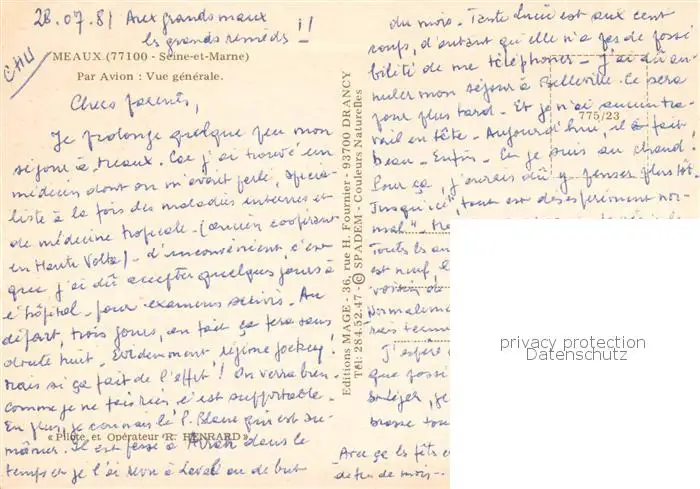 28.07.81 Aux grands maux
les grands remèdes !!
CHU
MEAUX (77100 - Seine-et-Marne)
Par Avion : Vue générale.
Chers parents,
Je prolonge quelque peu mon
séjour à Meaux. Car j'ai trouvé un
médecin dont on m'avait parlé, spécia-
liste à la fois des maladies internes et
de médecine tropicale - (ancien coopérant
en Haute Volta) - d'inconvénient, c'est
que j'ai dû accepter quelques jours à
l'hôpital - pour examens suivis - Au
départ, trois jours, en fait ça fera sans
doute huit - Evidemment régime jockey !
mais si ça fait de l'effet ! On verra bien
comme je ne fais rien c'est supportable -
En plus, je connais le P. Blanc qui est au-
mônier. Il est passé à dans le
temps et je l'ai revu à Laval au début
« Pilote et Opérateur R. HENRARD »
Editions MAGE - 36, rue H. Fournier - 93700 DRANCY
Tél: 284.52.47 - © SPADEM - Couleurs Naturelles
775/23
du mois - Tante est aux cent
coups, d'autant qu'elle n'a pas de possi
bilité de me téléphoner - J'ai dû an-
nuler mon séjour à Belleville. Ce sera
pour plus tard - Et je n'ai aucun tra-
vail en tête - Aujourd'hui, il fait
beau - Enfin - Ici je suis au chaud.
Pour ça, j'aurais dû y penser plus tôt.
Jusqu'ici, tout est désespérément nor-
mal"
Toutes les
est neuf,
voisin de
Normalement
J'espère
que
je
brasse tous
Avec ça les fêts
de fin de mois --
privacy protection
Datenschutz